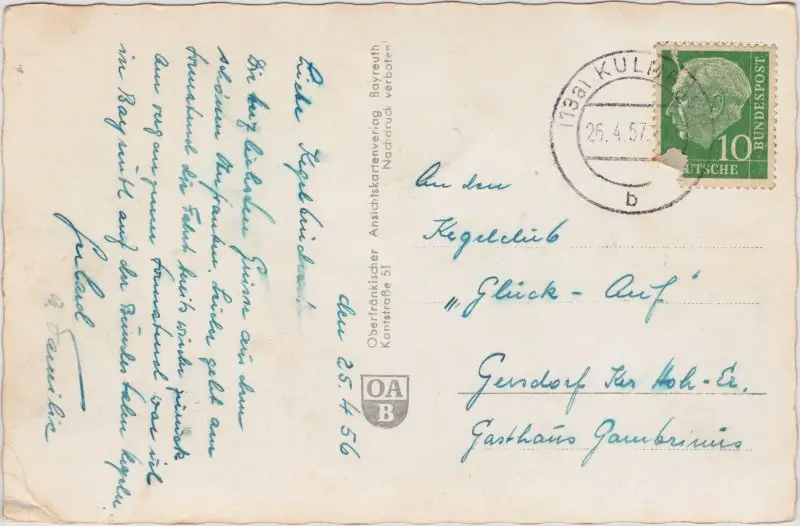 den 25.4.56
Liebe Kegelbrüder!
Die herzlichsten Grüsse aus dem
schönen Ufranken. Leider geht am
Sonnabend die Fahrt bereits wieder zurück
Am vergangenen Sonnabend war ich
in Bayreuth auf der Bundesbahn kegeln.
u Familie
Oberfränkischer Ansichtskartenverlag Bayreuth
Kantstraße 51 Nachdruck verboten!
OA
B
(13a) KULM
26.4.57.
b
10
BUNDESPOST
UTSCHE
An den
Kegelclub
„Glück - Auf"
Gersdorf Kr Hoh-Er.
Gasthaus Gambrinus